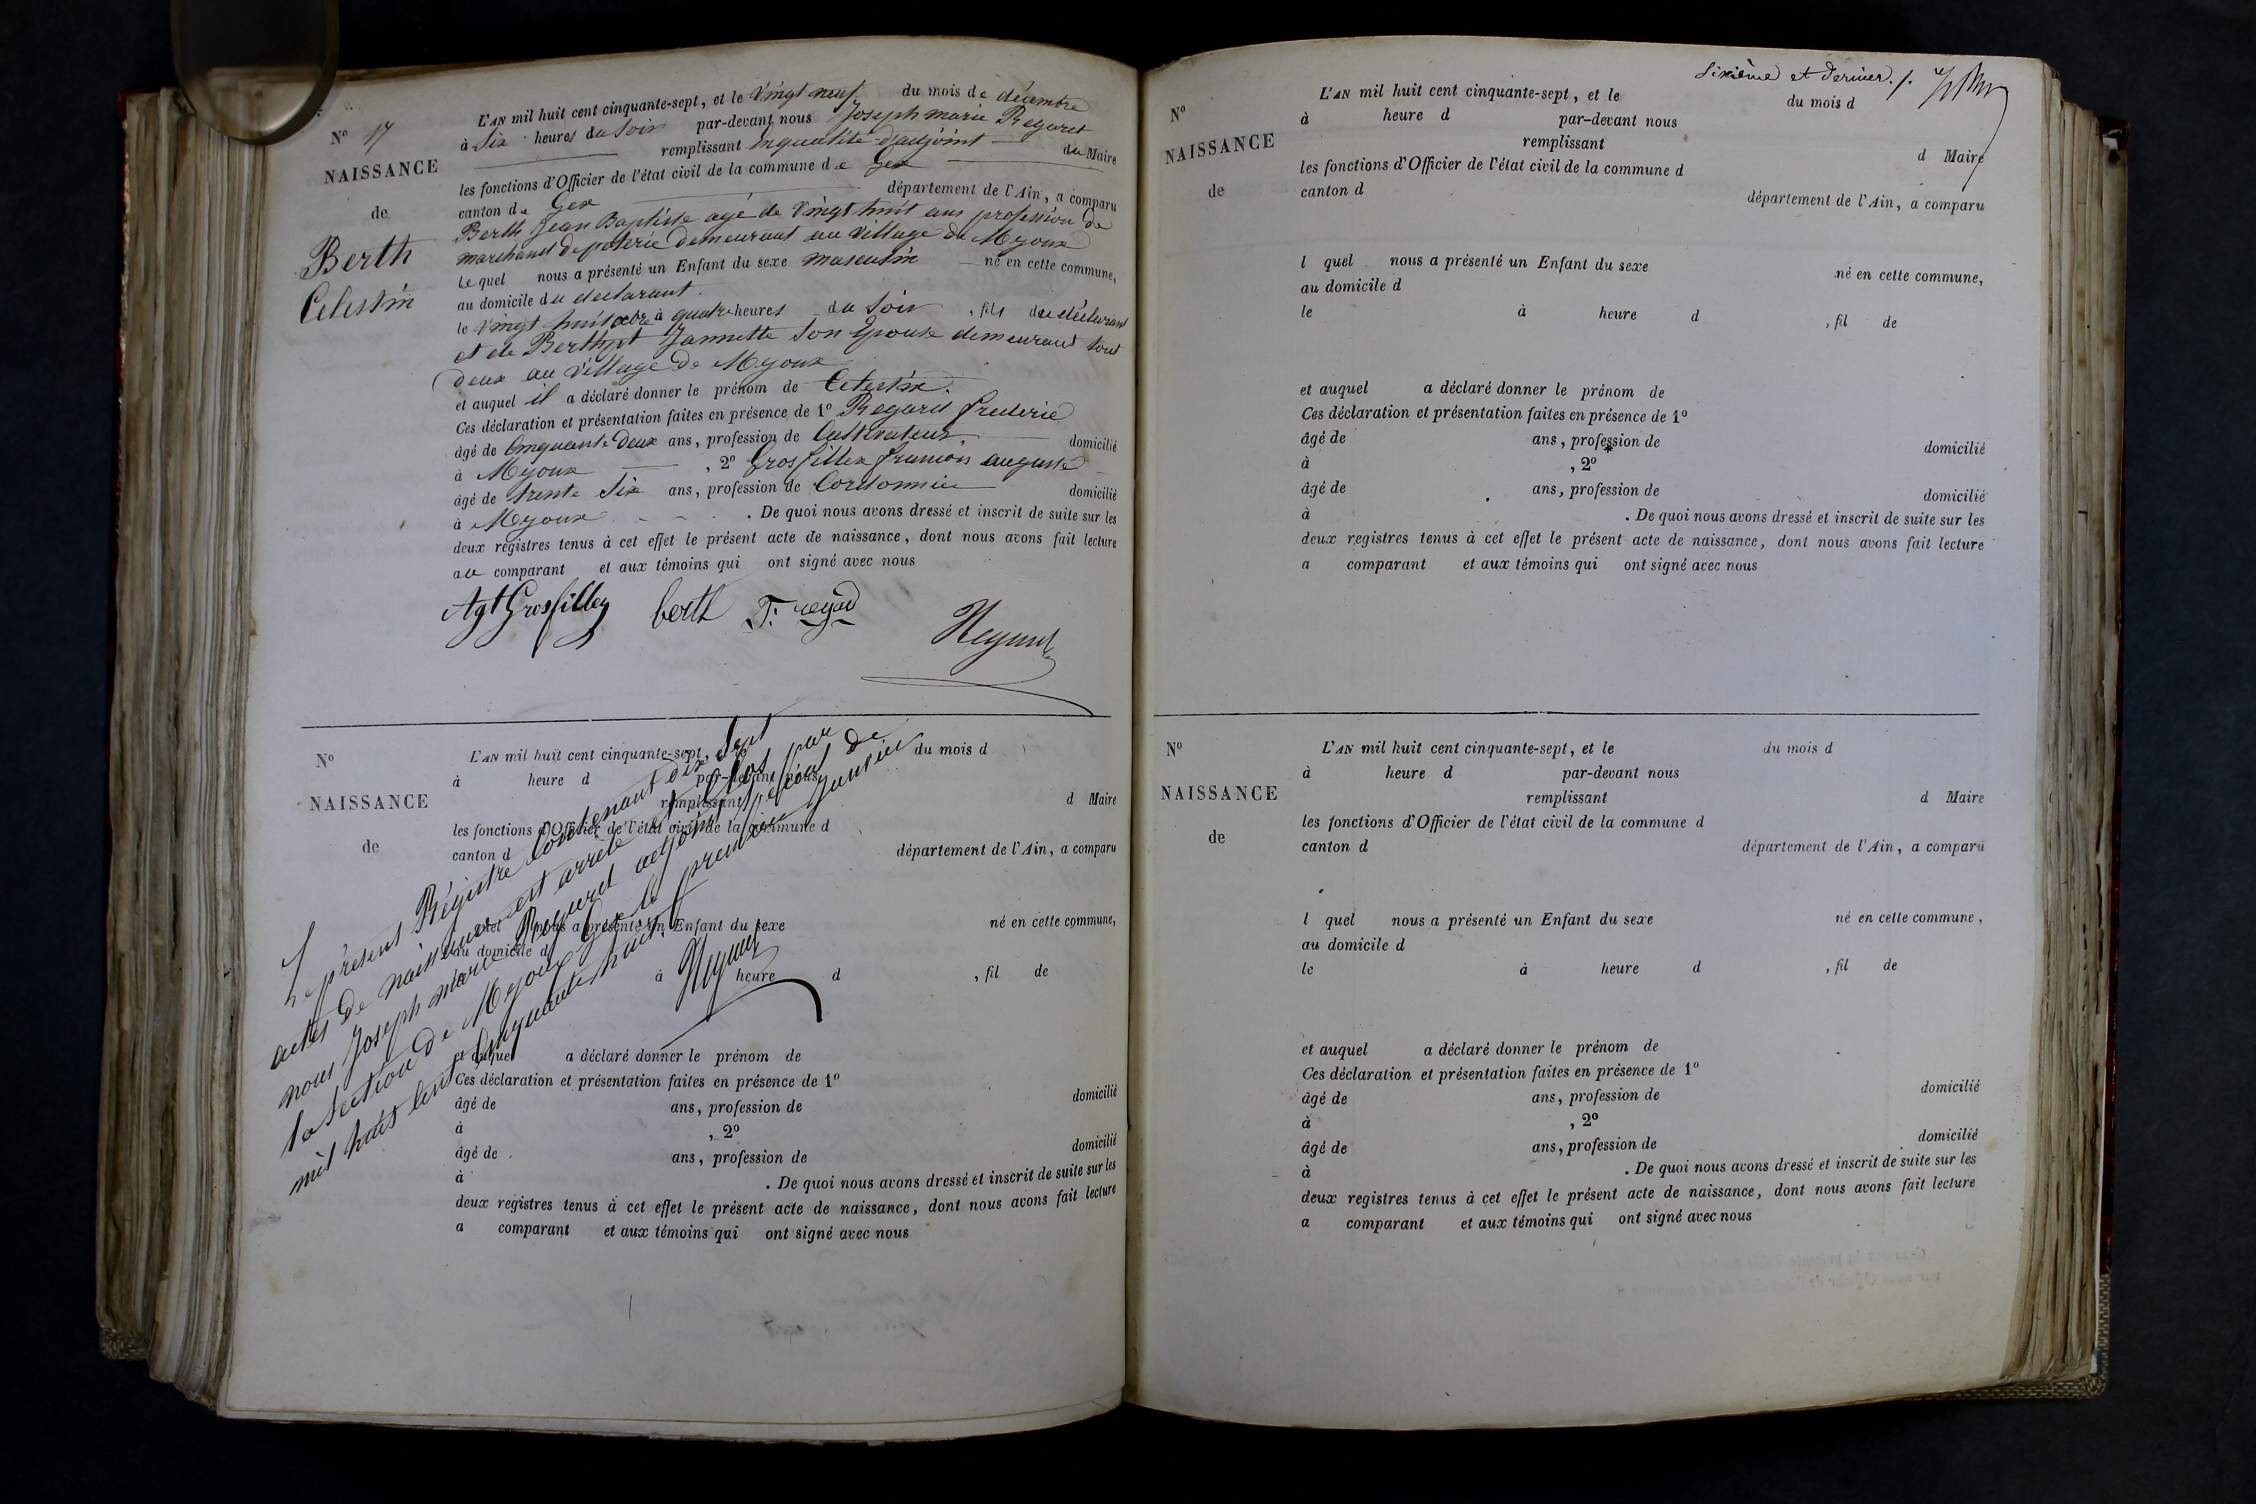 N° 17
NAISSANCE
de
Berth
Celestin
L'AN mil huit cent cinquante-sept, et le Vingt neuf du mois de décembre
à Six heures du Soir par-devant nous Joseph marie Regard
remplissant en qualité d'adjoint du Maire
les fonctions d'Officier de l'état civil de la commune de Gex
canton de Gex département de l'Ain, a comparu
Berth Jean Baptiste agé de Vingt huit ans profession de
marchand de poterie demeurant au Village de Myoux
Lequel nous a présenté un Enfant du sexe masculin né en cette commune,
au domicile du declarant.
le Vingt huit xbre à quatre heures du Soir, fils du déclarant
et de Jannette Son Epouse demeurant tout
deux au Village de Myoux
et auquel il a déclaré donner le prénom de Celestin.
Ces déclaration et présentation faites en présence de 1° Regard frederic
âgé de Cinquante deux ans, profession de Cultivateur. domicilié
à Myoux, 2° Grosfillex francois auguste
âgé de trente Six ans, profession de Cordonnier domicilié
à Myoux. De quoi nous avons dressé et inscrit de suite sur les
deux registres tenus à cet effet le présent acte de naissance, dont nous avons fait lecture
au comparant et aux témoins qui ont signé avec nous
Agt Grosfilley berth F: regad Regard
N°
NAISSANCE
de
L'AN mil huit cent cinquante-sept, et le du mois d
à heure d par-devant nous
remplissant d Maire
les fonctions d'Officier de l'état civil de la commune d
canton d département de l'Ain, a comparu
l quel nous a présenté un Enfant du sexe né en cette commune,
au domicile d
à heure d, fil de
et auquel a déclaré donner le prénom de
Ces déclaration et présentation faites en présence de 1°
âgé de ans, profession de domicilié
à, 2°
âgé de ans, profession de domicilié
à. De quoi nous avons dressé et inscrit de suite sur les
deux registres tenus à cet effet le présent acte de naissance, dont nous avons fait lecture
a comparant et aux témoins qui ont signé avec nous
Le présent Régistre Contenant dix Sept
actes de naissance est arrêté et Clos par
nous Joseph marie Regard adjoint spécial de
la Section de Myoux Gex le premier Janvier
mil huit Cent Cinquante huit.
Regard
Sixième et dernier.
N°
NAISSANCE
de
L'AN mil huit cent cinquante-sept, et le du mois d
à heure d par-devant nous
remplissant d Maire
les fonctions d'Officier de l'état civil de la commune d
canton d département de l'Ain, a comparu
l quel nous a présenté un Enfant du sexe né en cette commune,
au domicile d
le à heure d, fil de
et auquel a déclaré donner le prénom de
Ces déclaration et présentation faites en présence de 1°
âgé de ans, profession de domicilié
à, 2°
âgé de ans, profession de domicilié
à. De quoi nous avons dressé et inscrit de suite sur les
deux registres tenus à cet effet le présent acte de naissance, dont nous avons fait lecture
a comparant et aux témoins qui ont signé avec nous
N°
NAISSANCE
de
L'AN mil huit cent cinquante-sept, et le du mois d
à heure d par-devant nous
remplissant d Maire
les fonctions d'Officier de l'état civil de la commune d
canton d département de l'Ain, a comparu
l quel nous a présenté un Enfant du sexe né en cette commune,
au domicile d
le à heure d, fil de
et auquel a déclaré donner le prénom de
Ces déclaration et présentation faites en présence de 1°
âgé de ans, profession de domicilié
à, 2°
âgé de ans, profession de domicilié
à. De quoi nous avons dressé et inscrit de suite sur les
deux registres tenus à cet effet le présent acte de naissance, dont nous avons fait lecture
a comparant et aux témoins qui ont signé avec nous